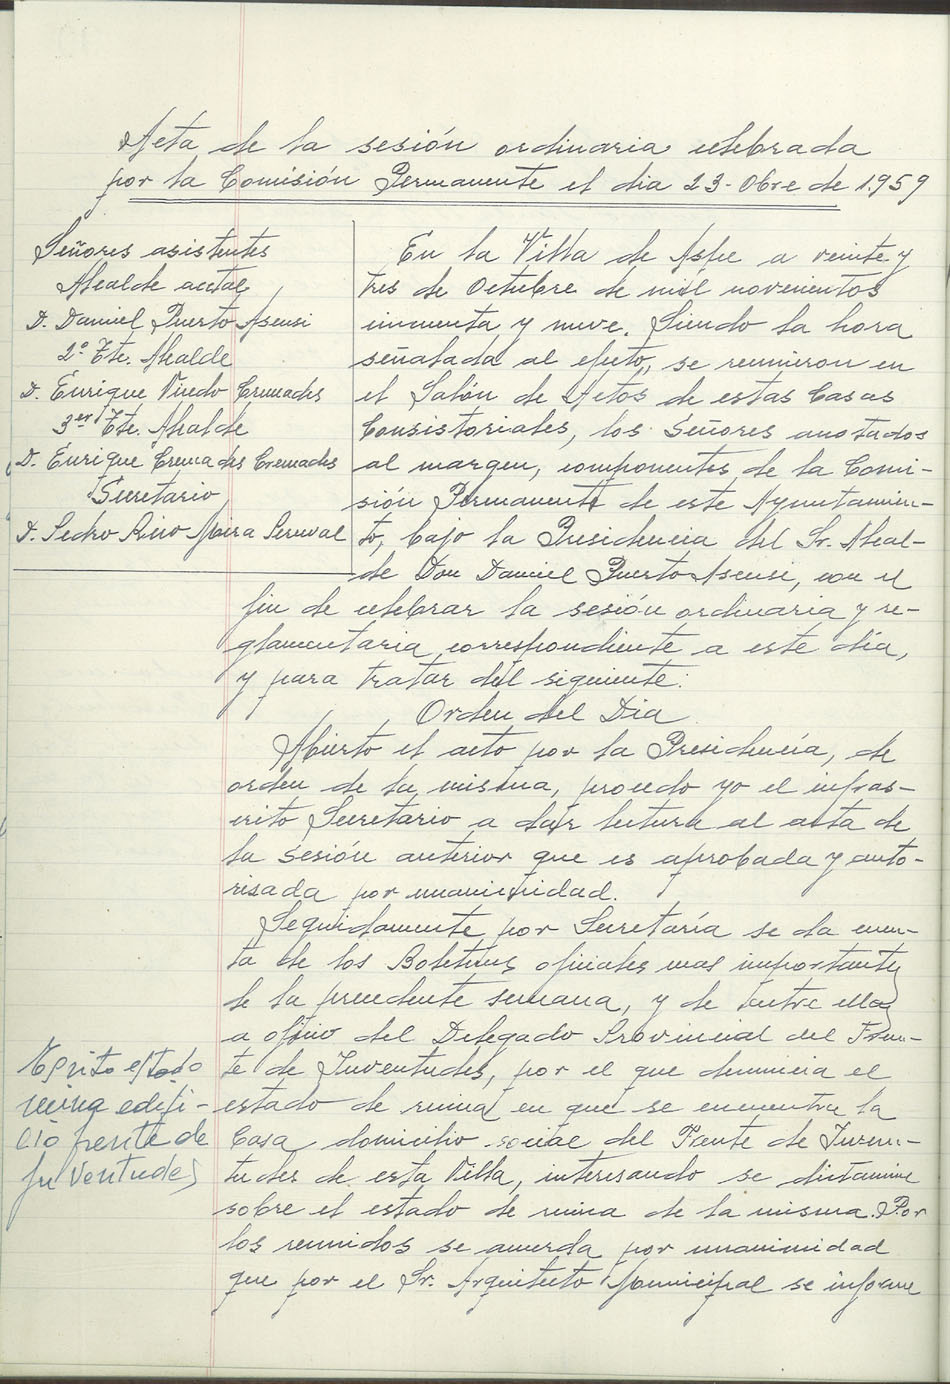 Acta de la sesión ordinaria celebrada
por la Comisión Permanente el dia 23-Obre de 1.959
Señores asistentes
Alcalde acctal,
D. Daniel Puerto Asensi
2º Tte. Alcalde
D. Enrique Viudo Cremades
3er Tte. Alcalde
D. Enrique Cremades Cremades
Secretario,
D. Pedro
En la Villa de Aspe a veinte y
tres de Octubre de mil novecientos
cincuenta y nueve. Siendo la hora
señalada al efecto, se reunieron en
el Salón de Actos de estas Casas
Consistoriales, los Señores anotados
al margen, componentes de la Comi-
sión Permanente de este Ayuntamien-
to, bajo la Presidencia del Sr. Alcal-
de Don Daniel Puerto Asensi, con el
fin de celebrar la sesión ordinaria y re-
glamentaria correspondiente a este día,
y para tratar del siguiente:
Orden del Dia
Abierto el acto por la Presidencia, de
orden de la misma, procedo yo el infras-
crito Secretario a dar lectura al acta de
la sesión anterior que es aprobada y auto-
risada por unanimidad.
Seguidamente por Secretaría se da cuen-
ta de los Boletines oficiales mas importantes
de la precedente semana, y de entre ellas
a oficio del Delegado Provincial del Fren-
te de Juventudes, por el que denuncia el
estado de ruina en que se encuentra la
Casa domicilio social del Frente de Juven-
tudes de esta Villa, interesando se dictamine
sobre el estado de ruina de la misma. Por
los reunidos se acuerda por unanimidad
que por el Sr. Arquitecto Municipal se informe
escrito estado
ruina edifi-
cio frente de
juventudes